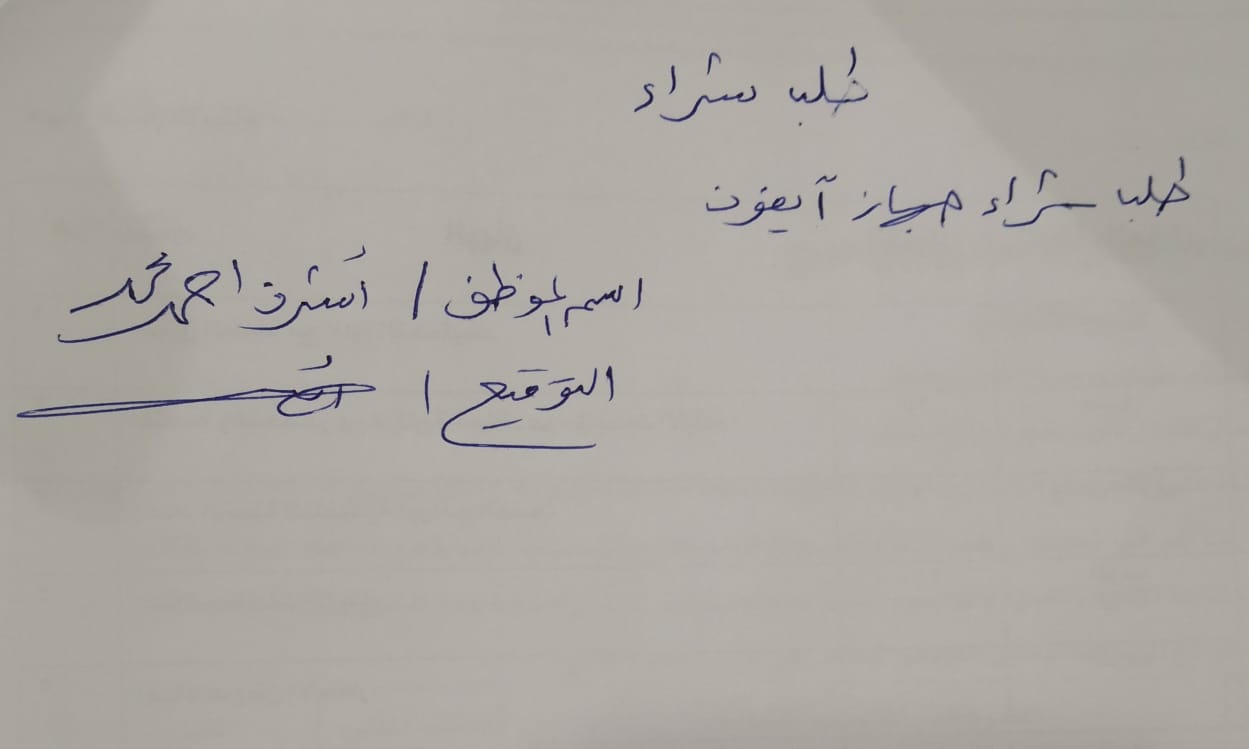 طلب شراء
طلب شراء جهاز آيفون
اسم الموظف / أشرف احمد محمد
التوقيع /